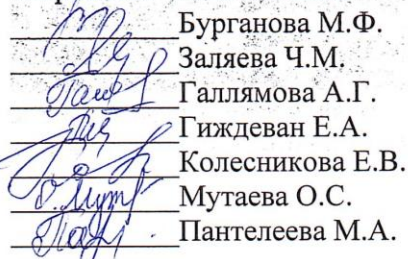 Бурганова М.Ф.
Заляева Ч.М.
Галлямова А.Г.
Гиждеван Е.А.
Колесникова Е.В.
Мутаева О.С.
Пантелеева М.А.